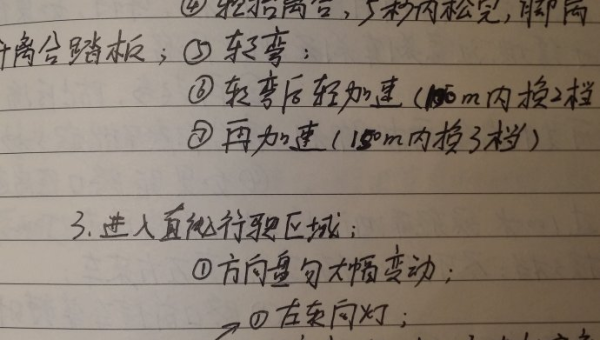 ④ 轻抬离合，5秒内松完，脚离
开离合踏板；⑤ 转弯；
⑥ 转弯后轻加速（100m内换2档
⑦ 再加速（150m内换3档）
3. 进入直线行驶区域；
① 方向盘勿大幅变动；
① 左转向灯；